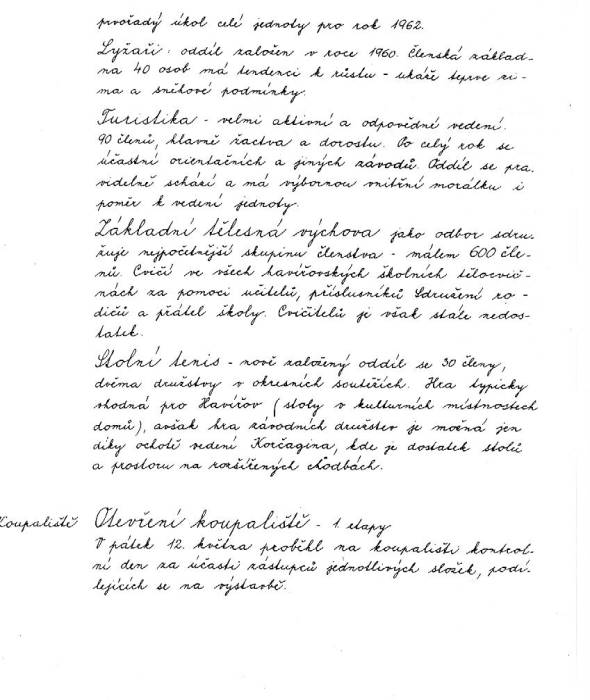 prvořadý úkol celé jednoty pro rok 1962.
Lyžaři: oddíl založen v roce 1960. Členská základ-
na 40 osob má tendenci k růstu - ukáže teprve zi-
ma a sněhové podmínky.
Turistika - velmi aktivní a odpovědné vedení.
90 členů, hlavně žactva a dorostu. Po celý rok se
účastní orientačních a jiných závodů. Oddíl se pra-
videlně schází a má výbornou vnitřní morálku i
poměr k vedení jednoty.
Základní tělesná výchova jako odbor sdru-
žuje nejpočetnější skupinu členstva - málem 600 čle-
nů. Cvičí ve všech havířovských školních tělocvič-
nách za pomoci učitelů, příslušníků Sdružení ro-
dičů a přátel školy. Cvičitelů je však stále nedos-
tatek.
Stolní tenis - nově založený oddíl se 30 členy,
dvěma družstvy v okresních soutěžích. Hra typicky
vhodná pro Havířov (stoly v kulturních místnostech
domů), avšak hra závodních družstev je možná jen
díky ochotě vedení Korčagina, kde je dostatek stolů
a prostoru na rozšířených chodbách.
Koupaliště Otevření koupaliště - 1. etapy
V pátek 12. května proběhl na koupališti kontrol-
ní den za účasti zástupců jednotlivých složek, podí-
lejících se na výstavbě.